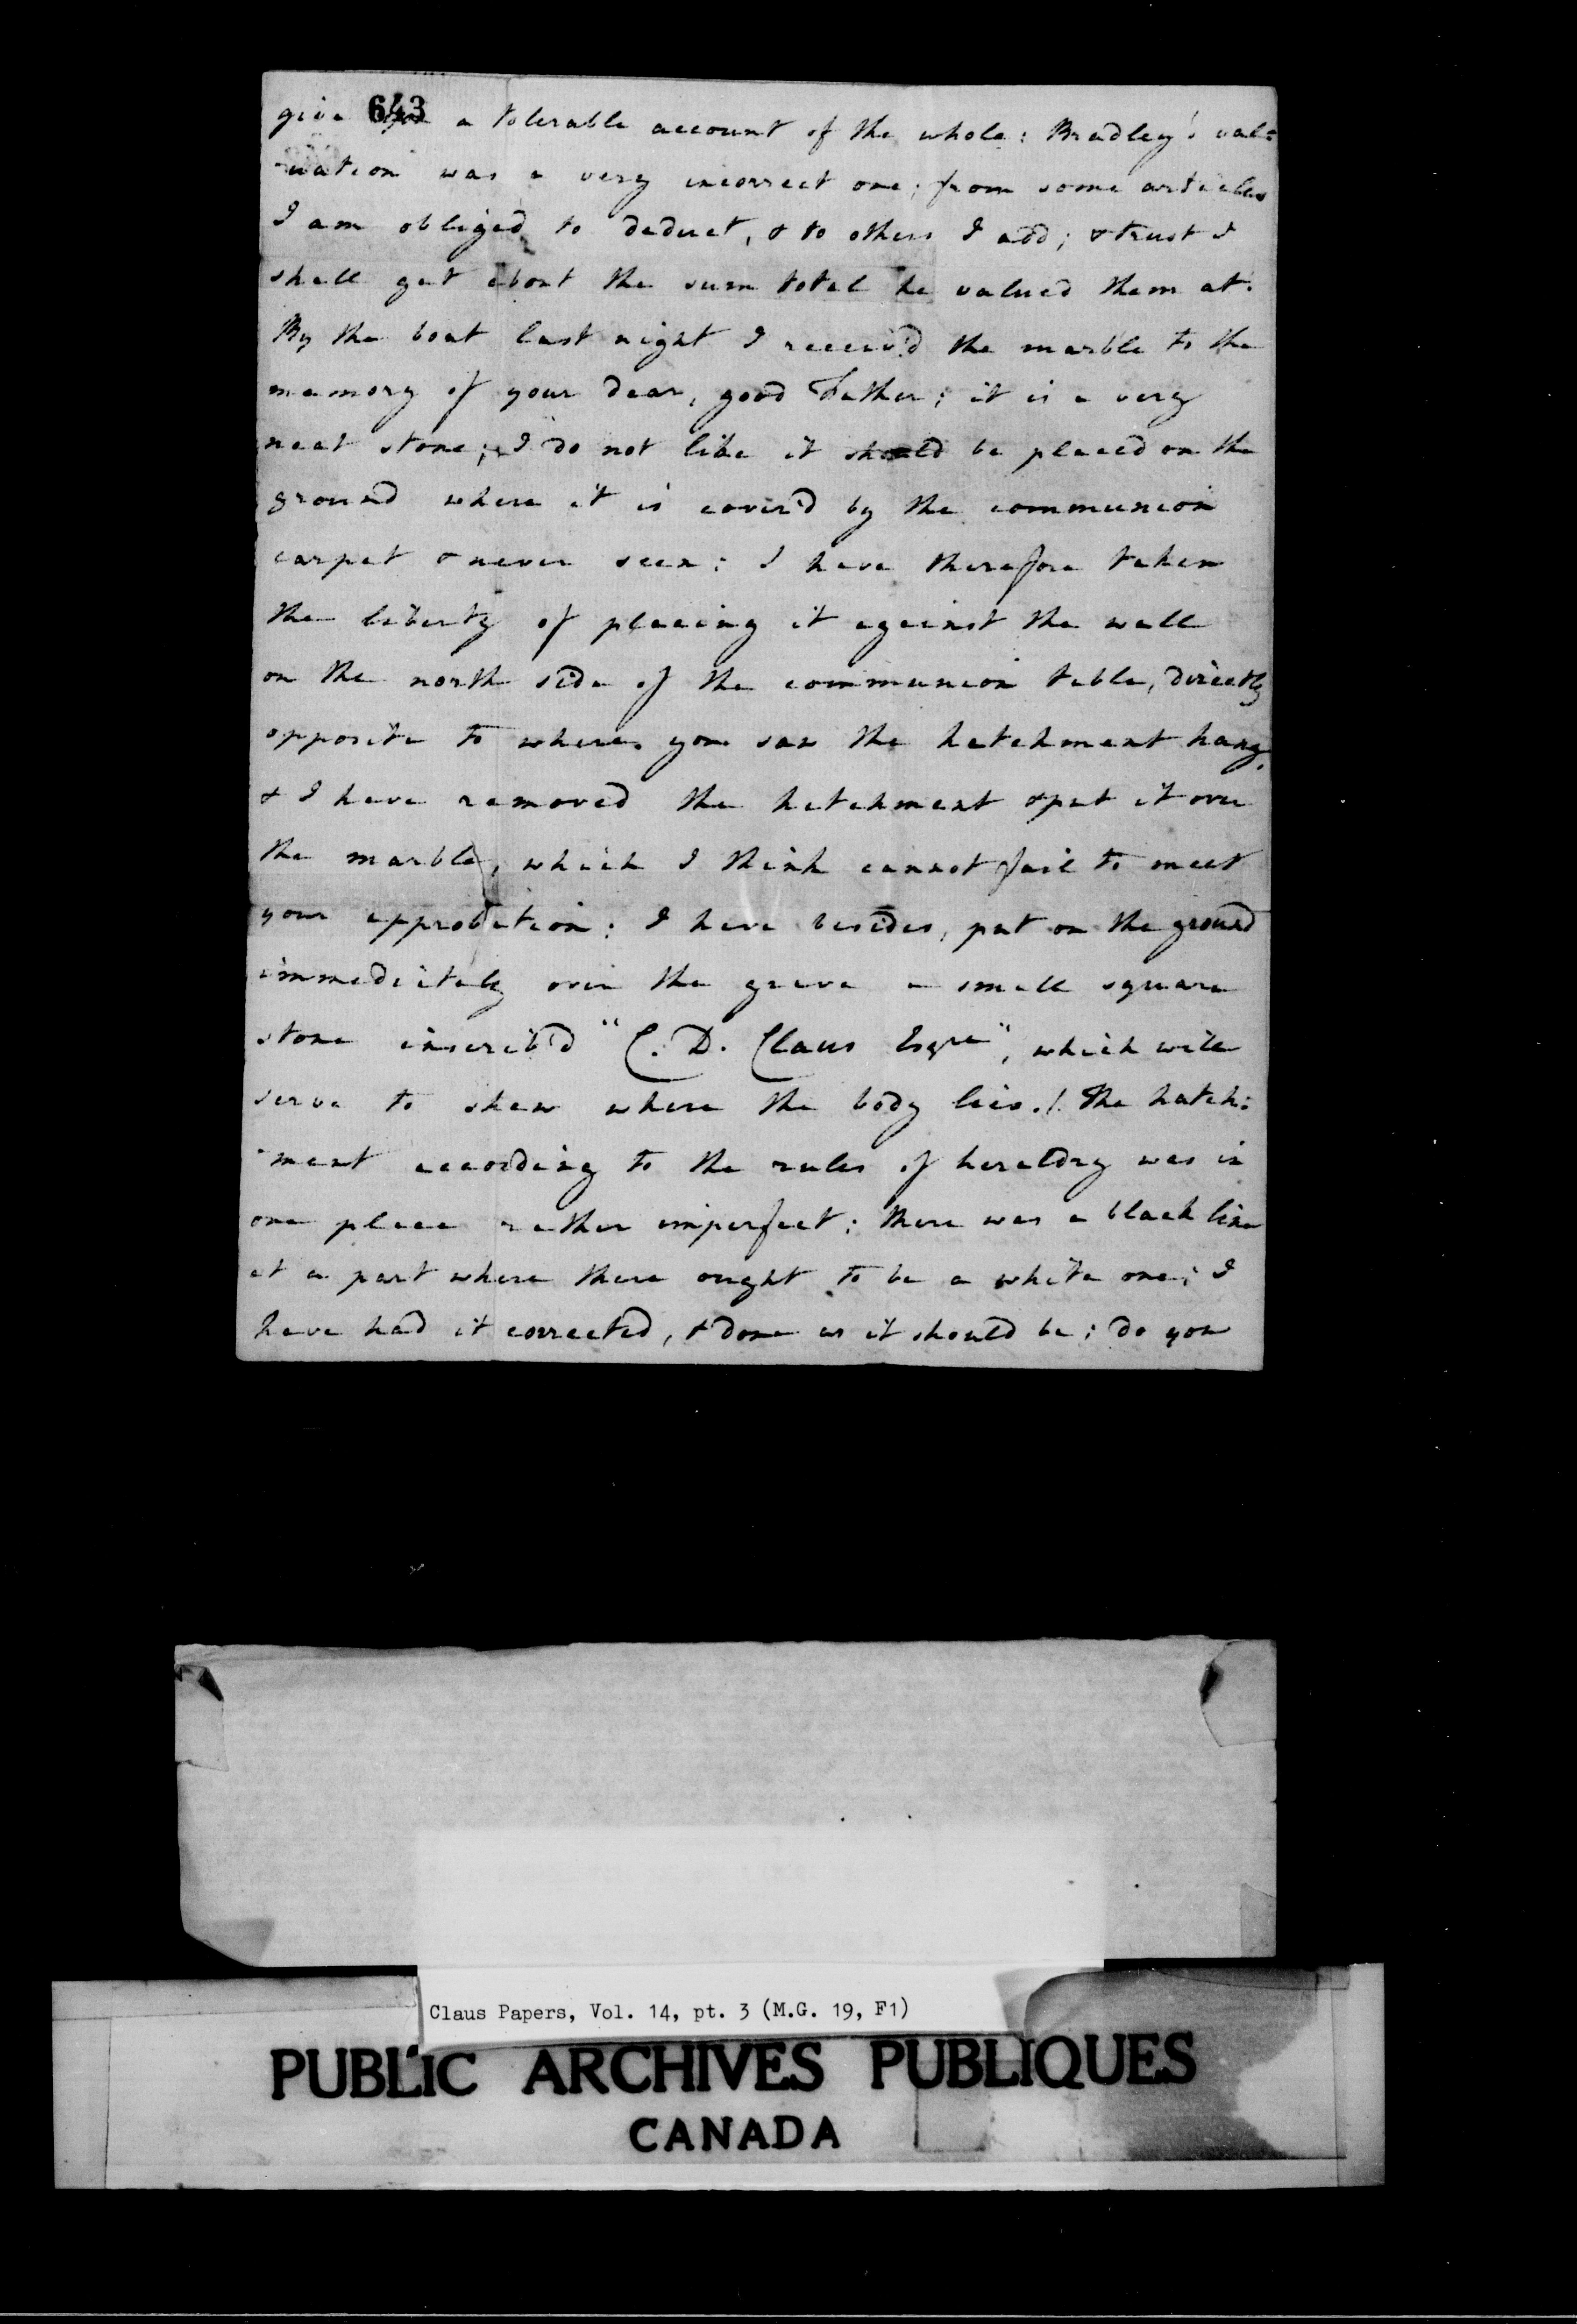 643
give you a tolerable account of the whole: Bradley's val=
=uation was a very incorrect one; from some articles
I am obliged to deduct, & to others I add; & trust I
shall get about the sum total he valued them at.
By the boat last night I receiv'd the marble to the
memory of your dear, good Father; it is a very
neat stone; I do not like it should be placed on the
ground where it is cover'd by the communion
carpet & never seen: I have therefore taken
the liberty of placing it against the wall
on the north side of the communion table, directly
opposite to where you saw the hatchment hang,
& I have removed the hatchment & put it over
the marble, which I think cannot fail to meet
your approbation: I have besides, put on the ground
immediately over the grave a small square
stone inscrib'd "C. D. Claus Esqre", which will
serve to shew where the body lies./. The hatch:
-ment according to the rules of heraldry was in
one place rather imperfect: there was a black line
at a part where there ought to be a white one; I
have had it corrected, & done as it should be: do you
Claus Papers, Vol. 14, pt. 3 (M.G. 19, F1)
PUBLIC ARCHIVES PUBLIQUES
CANADA